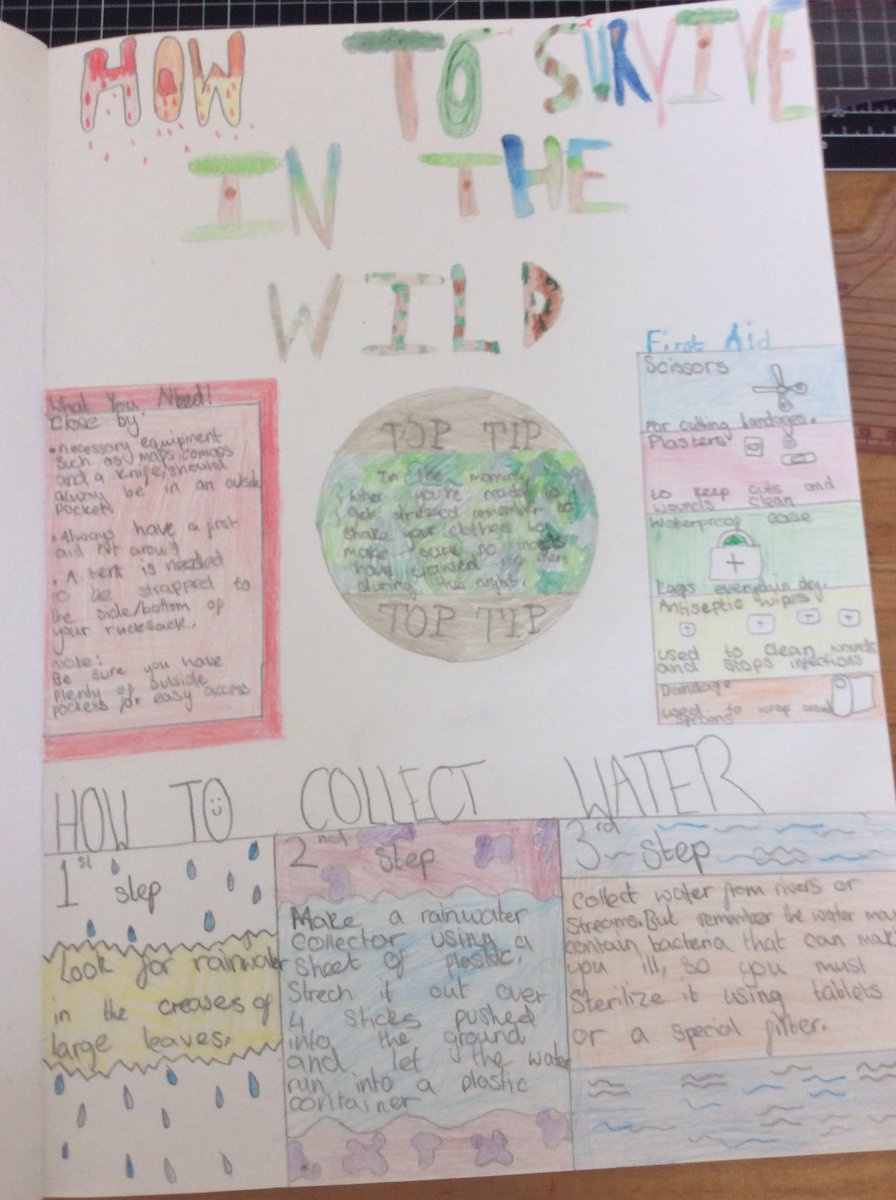 HOW TO SURVIVE
IN THE
WILD
What You Need!
Close by.
• necessary equipment
such as maps, comaps
and a knife, should
be in an outside
pocket.
• Always have a first
aid kit around
• A tent is needed
to be strapped to
the side/bottom of
your rucksack.
note:
Be sure you have
plenty of outside
pockets for easy access
TOP TIP
In the morning
when you're ready to
get stressed remember to
shake your clothes to
make sure no
have crawled
during the night.
TOP TIP
First Aid
Scissors
For cutting bandages.
Plasters
to keep cuts and
wounds clean
Waterproof case
Keeps everythin dry.
Antiseptic wipes
used to clean wounds
and stops infections
Bandage
used to wrap
sprains
HOW TO COLLECT WATER
1st
step
Look for rainwater
in the creases of
large leaves.
2nd step
Make a rainwater
collector using a
sheet of plastic.
Strech it out over
4 sticks pushed
into the ground
and let the water
run into a plastic
container
3rd step
collect water from rivers or
streams. But remember the water may
contain bacteria that can mak
you ill, so you must
Sterilize it using tablets
or a special filter.